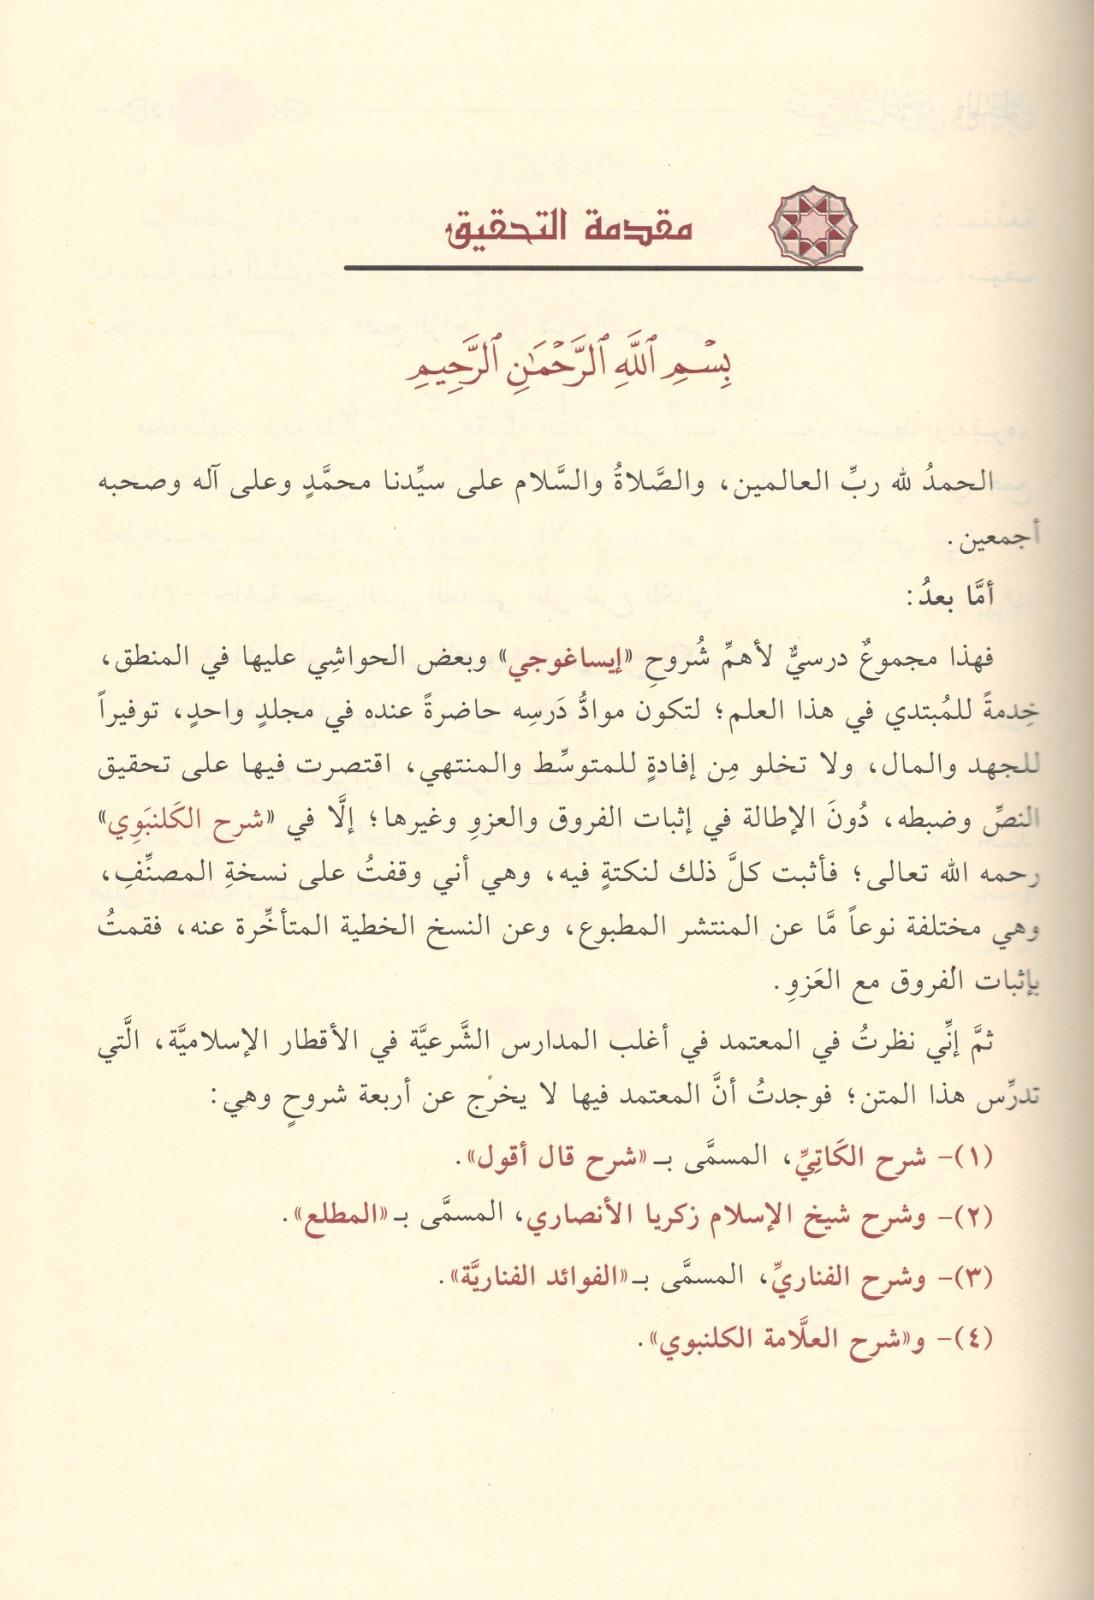 مقدمة التحقيق
بِسْمِ ٱللَّهِ ٱلرَّحْمَٰنِ ٱلرَّحِيمِ
الحمدُ لله ربِّ العالمين، والصَّلاةُ والسَّلام على سيِّدنا محمَّدٍ وعلى آله وصحبه
أجمعين.
أمَّا بعدُ:
فهذا مجموعٌ درسيٌّ لأهمِّ شُروحِ «إيساغوجي» وبعض الحواشِي عليها في المنطق،
خِدمةً للمُبتدي في هذا العلم؛ لتكون موادُّ دَرسِه حاضرةً عنده في مجلدٍ واحدٍ، توفيراً
للجهد والمال، ولا تخلو مِن إفادةٍ للمتوسِّط والمنتهي، اقتصرت فيها على تحقيق
النصِّ وضبطه، دُونَ الإطالة في إثبات الفروق والعزوِ وغيرها؛ إلَّا في «شرح الكَلنبَوِي»
رحمه الله تعالى؛ فأثبت كلَّ ذلك لنكتةٍ فيه، وهي أني وقفتُ على نسخةِ المصنِّفِ،
وهي مختلفة نوعاً مَّا عن المنتشر المطبوع، وعن النسخ الخطية المتأخِّرة عنه، فقمتُ
بإثبات الفروق مع العَزوِ.
ثمَّ إنِّي نظرتُ في المعتمد في أغلب المدارس الشَّرعيَّة في الأقطار الإسلاميَّة، الَّتي
تدرِّس هذا المتن؛ فوجدتُ أنَّ المعتمد فيها لا يخرج عن أربعة شروحٍ وهي:
(١)- شرح الكَاتِيِّ، المسمَّى بـ «شرح قال أقول».
(٢)- وشرح شيخ الإسلام زكريا الأنصاري، المسمَّى بـ «المطلع».
(٣)- وشرح الفناريِّ، المسمَّى بـ «الفوائد الفناريَّة».
(٤)- و«شرح العلَّامة الكلنبوي».